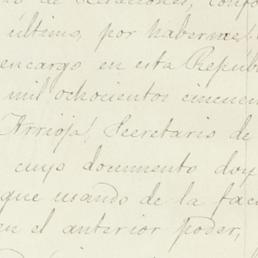 de Relaciones, confo
último, por haberme
encargo en esta Repúb
mil ochocientos cincuen
Arrioja, Secretario de
cuyo documento doy
que usando de la fac
en el anterior poder,